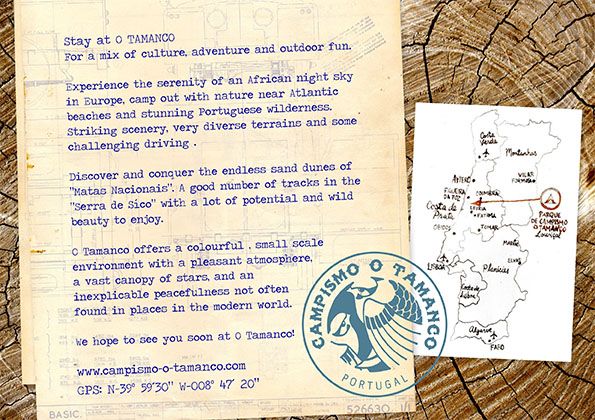 Stay at O TAMANCO
For a mix of culture, adventure and outdoor fun.
Experience the serenity of an African night sky
in Europe, camp out with nature near Atlantic
beaches and stunning Portuguese wilderness.
Striking scenery, very diverse terrains and some
challenging driving .
Discover and conquer the endless sand dunes of
"Matas Nacionais". A good number of tracks in the
"Serra de Sico" with a lot of potential and wild
beauty to enjoy.
O Tamanco offers a colourful , small scale
environment with a pleasant atmosphere,
a vast canopy of stars, and an
inexplicable peacefulness not often
found in places in the modern world.
We hope to see you soon at O Tamanco!
www.campismo-o-tamanco.com
GPS: N-39º 59'30" W-008º 47' 20"
BASIC.
526630 1/1
CAMPISMO O TAMANCO
PORTUGAL
Costa
Verde
Montanhas
VILAR
FORMOSO
AVEIRO
FIGUEIRA
DA FOZ
COIMBRA
Costa de
Prata
LEIRIA
FATIMA
OBIDOS
TOMAR
PARQUE
DE CAMPISMO
O TAMANCO
Louriçal
ELVAS
LISBOA
Planicies
Costa de
Lisboa
Algarve
FARO